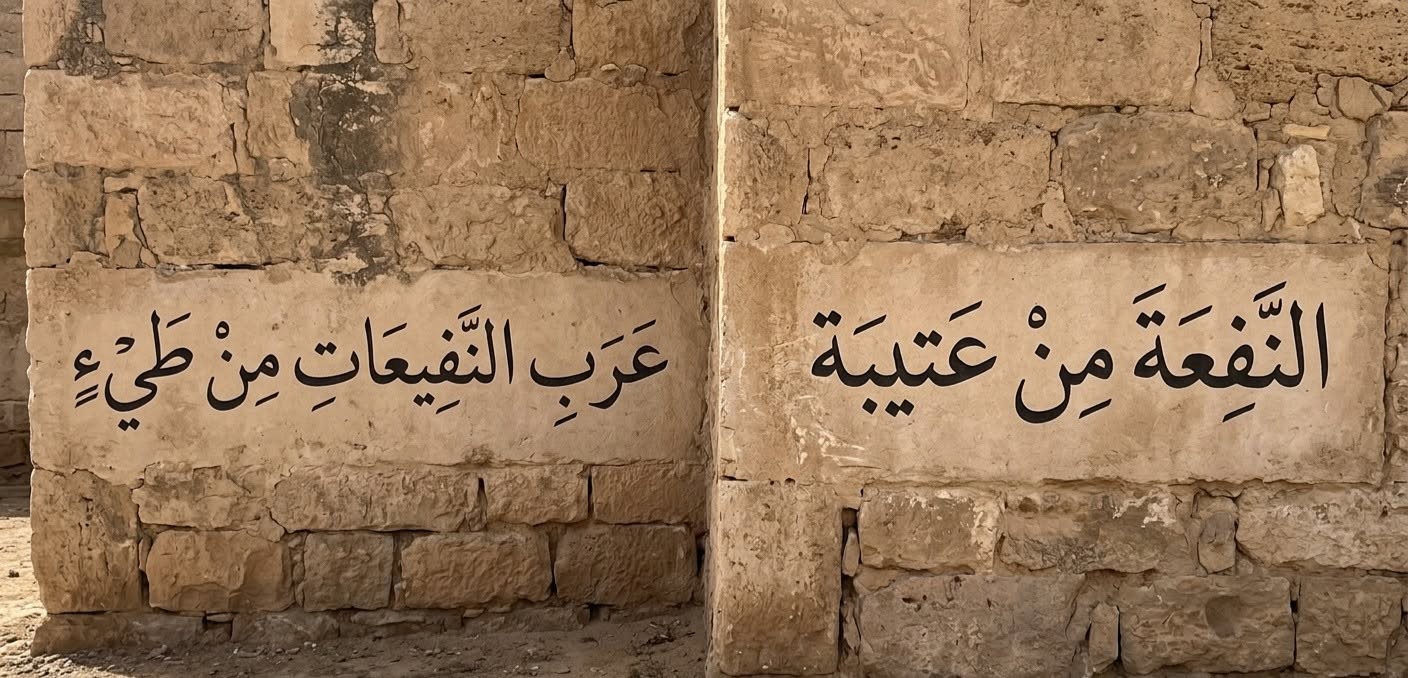 النَّفِعَةَ مِنْ عَتَيبَة
عَرَبِ النَّفِيعَاتِ مِنْ طَيْءٍ